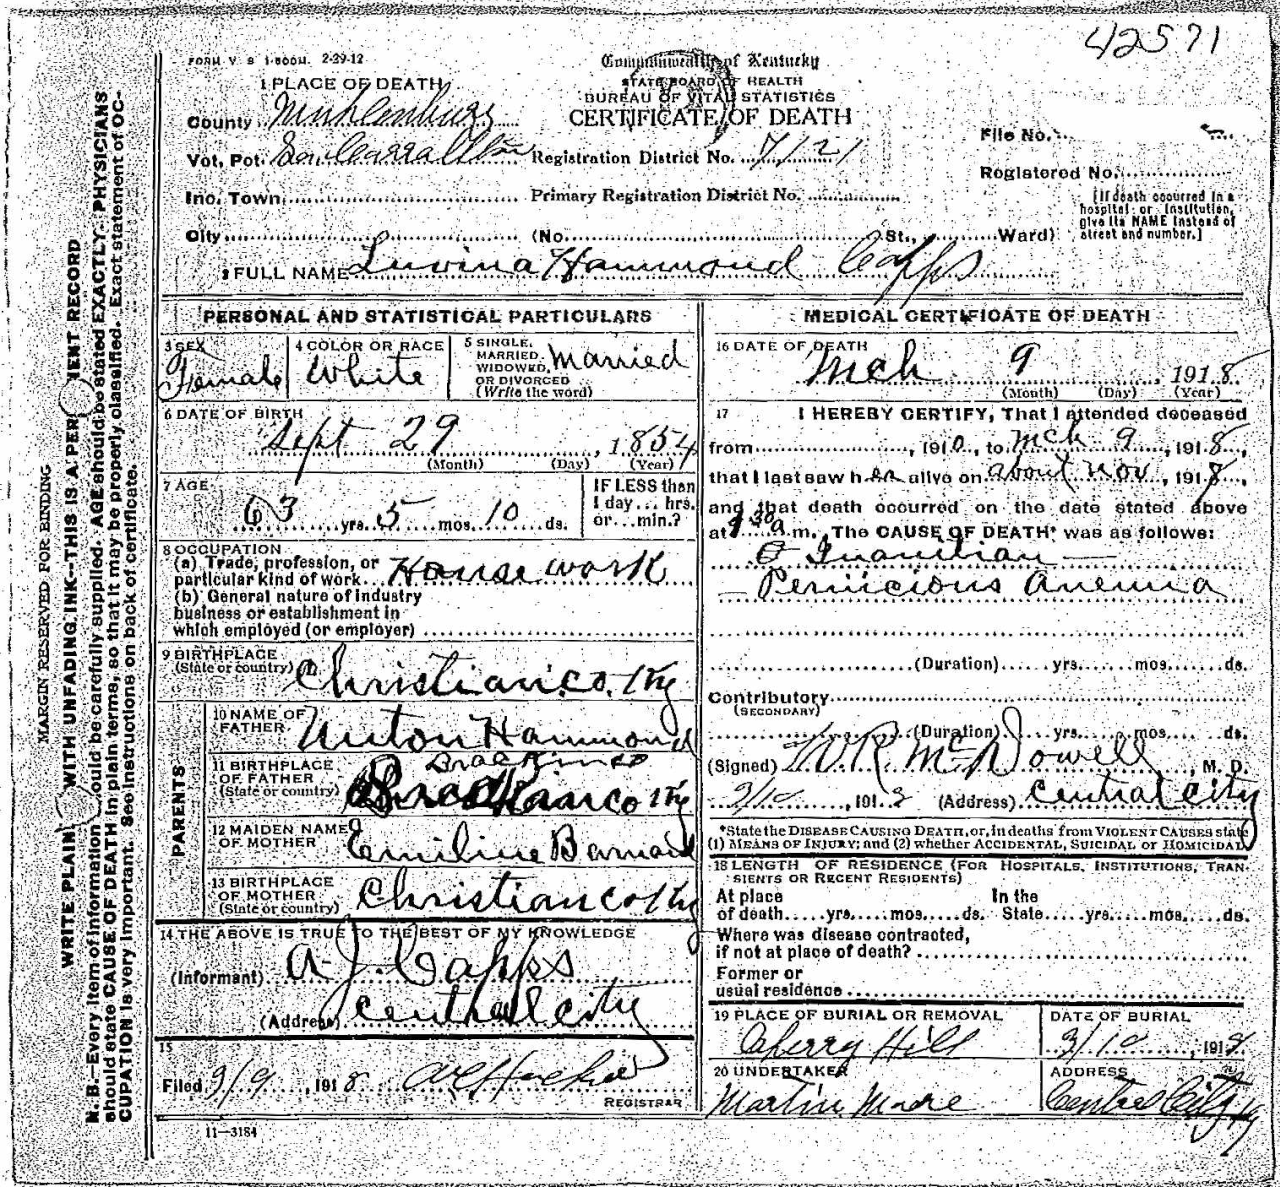 42571
FORM V. S. 1-500M. 2-29-12
Commonwealth of Kentucky
STATE BOARD OF HEALTH
BUREAU OF VITAL STATISTICS
CERTIFICATE OF DEATH
1 PLACE OF DEATH
County Muhlenburg
Vot. Pct. So. Carrallton Registration District No. 7121
Inc. Town Primary Registration District No.
City (No. St., Ward)
File No.
Registered No.
[If death occurred in a hospital or institution, give its NAME instead of street and number.]
2 FULL NAME Luvina Hammond Capps
PERSONAL AND STATISTICAL PARTICULARS
3 SEX Female
4 COLOR OR RACE White
5 SINGLE, MARRIED, WIDOWED, OR DIVORCED (Write the word) Married
6 DATE OF BIRTH
Sept 29, 1854
(Month) (Day) (Year)
7 AGE
63 yrs. 5 mos. 10 ds.
IF LESS than 1 day... hrs. or... min.?
8 OCCUPATION
(a) Trade, profession, or particular kind of work House work
(b) General nature of industry business or establishment in which employed (or employer)
9 BIRTHPLACE (State or country) Christian co. Ky
PARENTS
10 NAME OF FATHER Hammond
11 BIRTHPLACE OF FATHER (State or country) co Ky
12 MAIDEN NAME OF MOTHER Emiline Barnard
13 BIRTHPLACE OF MOTHER (State or country) Christian co Ky
14 THE ABOVE IS TRUE TO THE BEST OF MY KNOWLEDGE
(Informant) A. J. Capps
(Address) Central City
15
Filed 3/9, 1918
REGISTRAR
11-3184
MEDICAL CERTIFICATE OF DEATH
16 DATE OF DEATH
Mch 9, 1918
(Month) (Day) (Year)
17 I HEREBY CERTIFY, That I attended deceased
from , 1910, to Mch 9, 1918,
that I last saw her alive on about Nov, 1918,
and that death occurred on the date stated above
at 130 a m. The CAUSE OF DEATH* was as follows:
Inanition
Pernicious Anemia
(Duration) yrs. mos. ds.
Contributory
(SECONDARY)
(Duration) yrs. mos. ds.
(Signed) W. R. McDowell, M. D.
3/10, 1918 (Address) Central City
*State the DISEASE CAUSING DEATH, or, in deaths from VIOLENT CAUSES state
(1) MEANS OF INJURY; and (2) whether ACCIDENTAL, SUICIDAL OR HOMICIDAL
18 LENGTH OF RESIDENCE (FOR HOSPITALS, INSTITUTIONS, TRANSIENTS OR RECENT RESIDENTS)
At place of death yrs. mos. ds. In the State yrs. mos. ds.
Where was disease contracted, if not at place of death?
Former or usual residence
19 PLACE OF BURIAL OR REMOVAL Cherry Hill
DATE OF BURIAL 3/10, 1918
20 UNDERTAKER Martin Moore
ADDRESS Central City Ky
MARGIN RESERVED FOR BINDING
WRITE PLAIN WITH UNFADING INK--THIS IS A PER ENT RECORD
N. B.--Every item of information ould be carefully supplied. AGE should be stated EXACTLY. PHYSICIANS
should state CAUSE OF DEATH in plain terms, so that it may be properly classified. Exact statement of OC-
CUPATION is very important. See instructions on back of certificate.